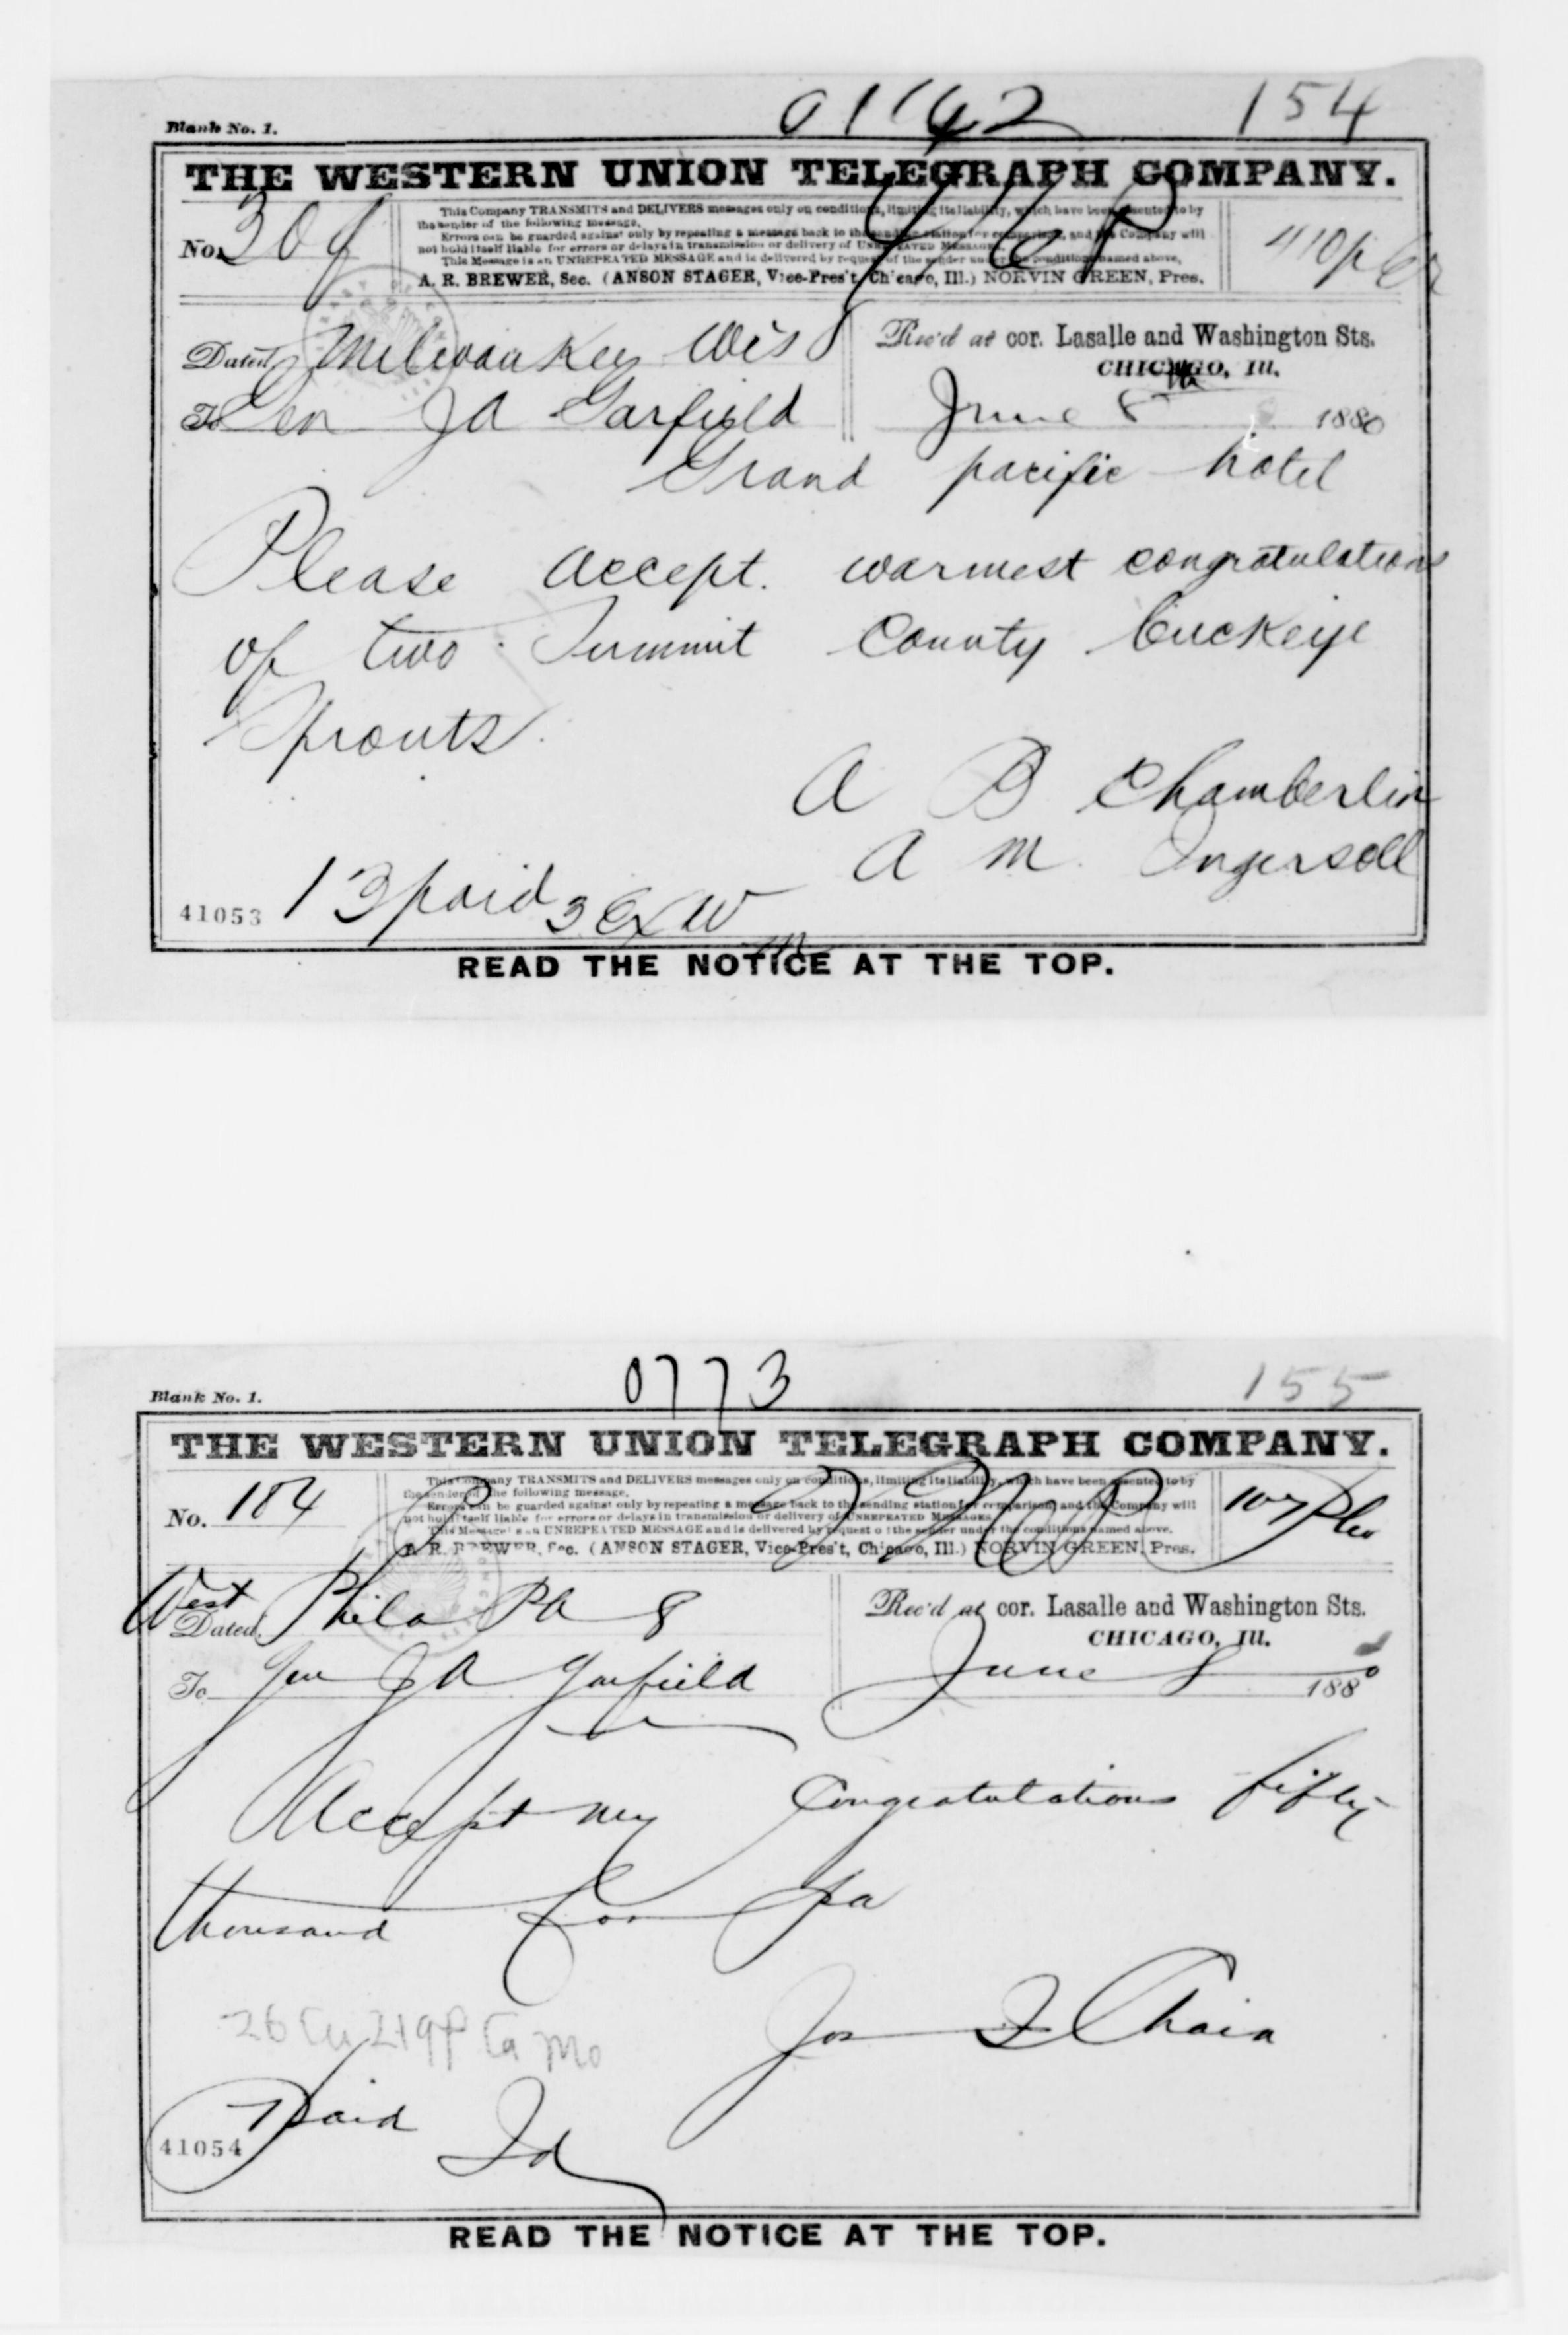 154
Blank No. 1.
THE WESTERN UNION TELEGRAPH COMPANY.
No.
This Company TRANSMITS and DELIVERS messages only on conditions, limiting its liability, which have been assented to by
the sender of the following message.
Errors can be guarded against only by repeating a message back to the sending station for comparison, and the Company will
not hold itself liable for errors or delays in transmission or delivery of UNREPEATED MESSAGES.
This Message is an UNREPEATED MESSAGE and is delivered by request of the sender under the conditions named above.
A. R. BREWER, Sec. (ANSON STAGER, Vice-Pres't, Chicago, Ill.) NORVIN GREEN, Pres.
Dated Milwaukee Wis 8
Rec'd at cor. Lasalle and Washington Sts.
CHICAGO, Ill.
To Gen J A Garfield
June 8th 1880
Grand pacific hotel
Please accept. warmest congratulations
of two Summit County Buckeye
Sprouts.
A B Chamberlin
A M Ingersoll
41053 13 paid
READ THE NOTICE AT THE TOP.
0773 155
Blank No. 1.
THE WESTERN UNION TELEGRAPH COMPANY.
No. 184
This Company TRANSMITS and DELIVERS messages only on conditions, limiting its liability, which have been assented to by
the sender of the following message.
Errors can be guarded against only by repeating a message back to the sending station for comparison, and the Company will
not hold itself liable for errors or delays in transmission or delivery of UNREPEATED MESSAGES.
This Message is an UNREPEATED MESSAGE and is delivered by request of the sender under the conditions named above.
A. R. BREWER, Sec. (ANSON STAGER, Vice-Pres't, Chicago, Ill.) NORVIN GREEN, Pres.
Dated West Phila Pa 8
Rec'd at cor. Lasalle and Washington Sts.
CHICAGO, Ill.
To Gen J A Garfield
June 8 1880
Accept my Congratulations fifty
thousand for Pa
Jos
Paid
41054
READ THE NOTICE AT THE TOP.